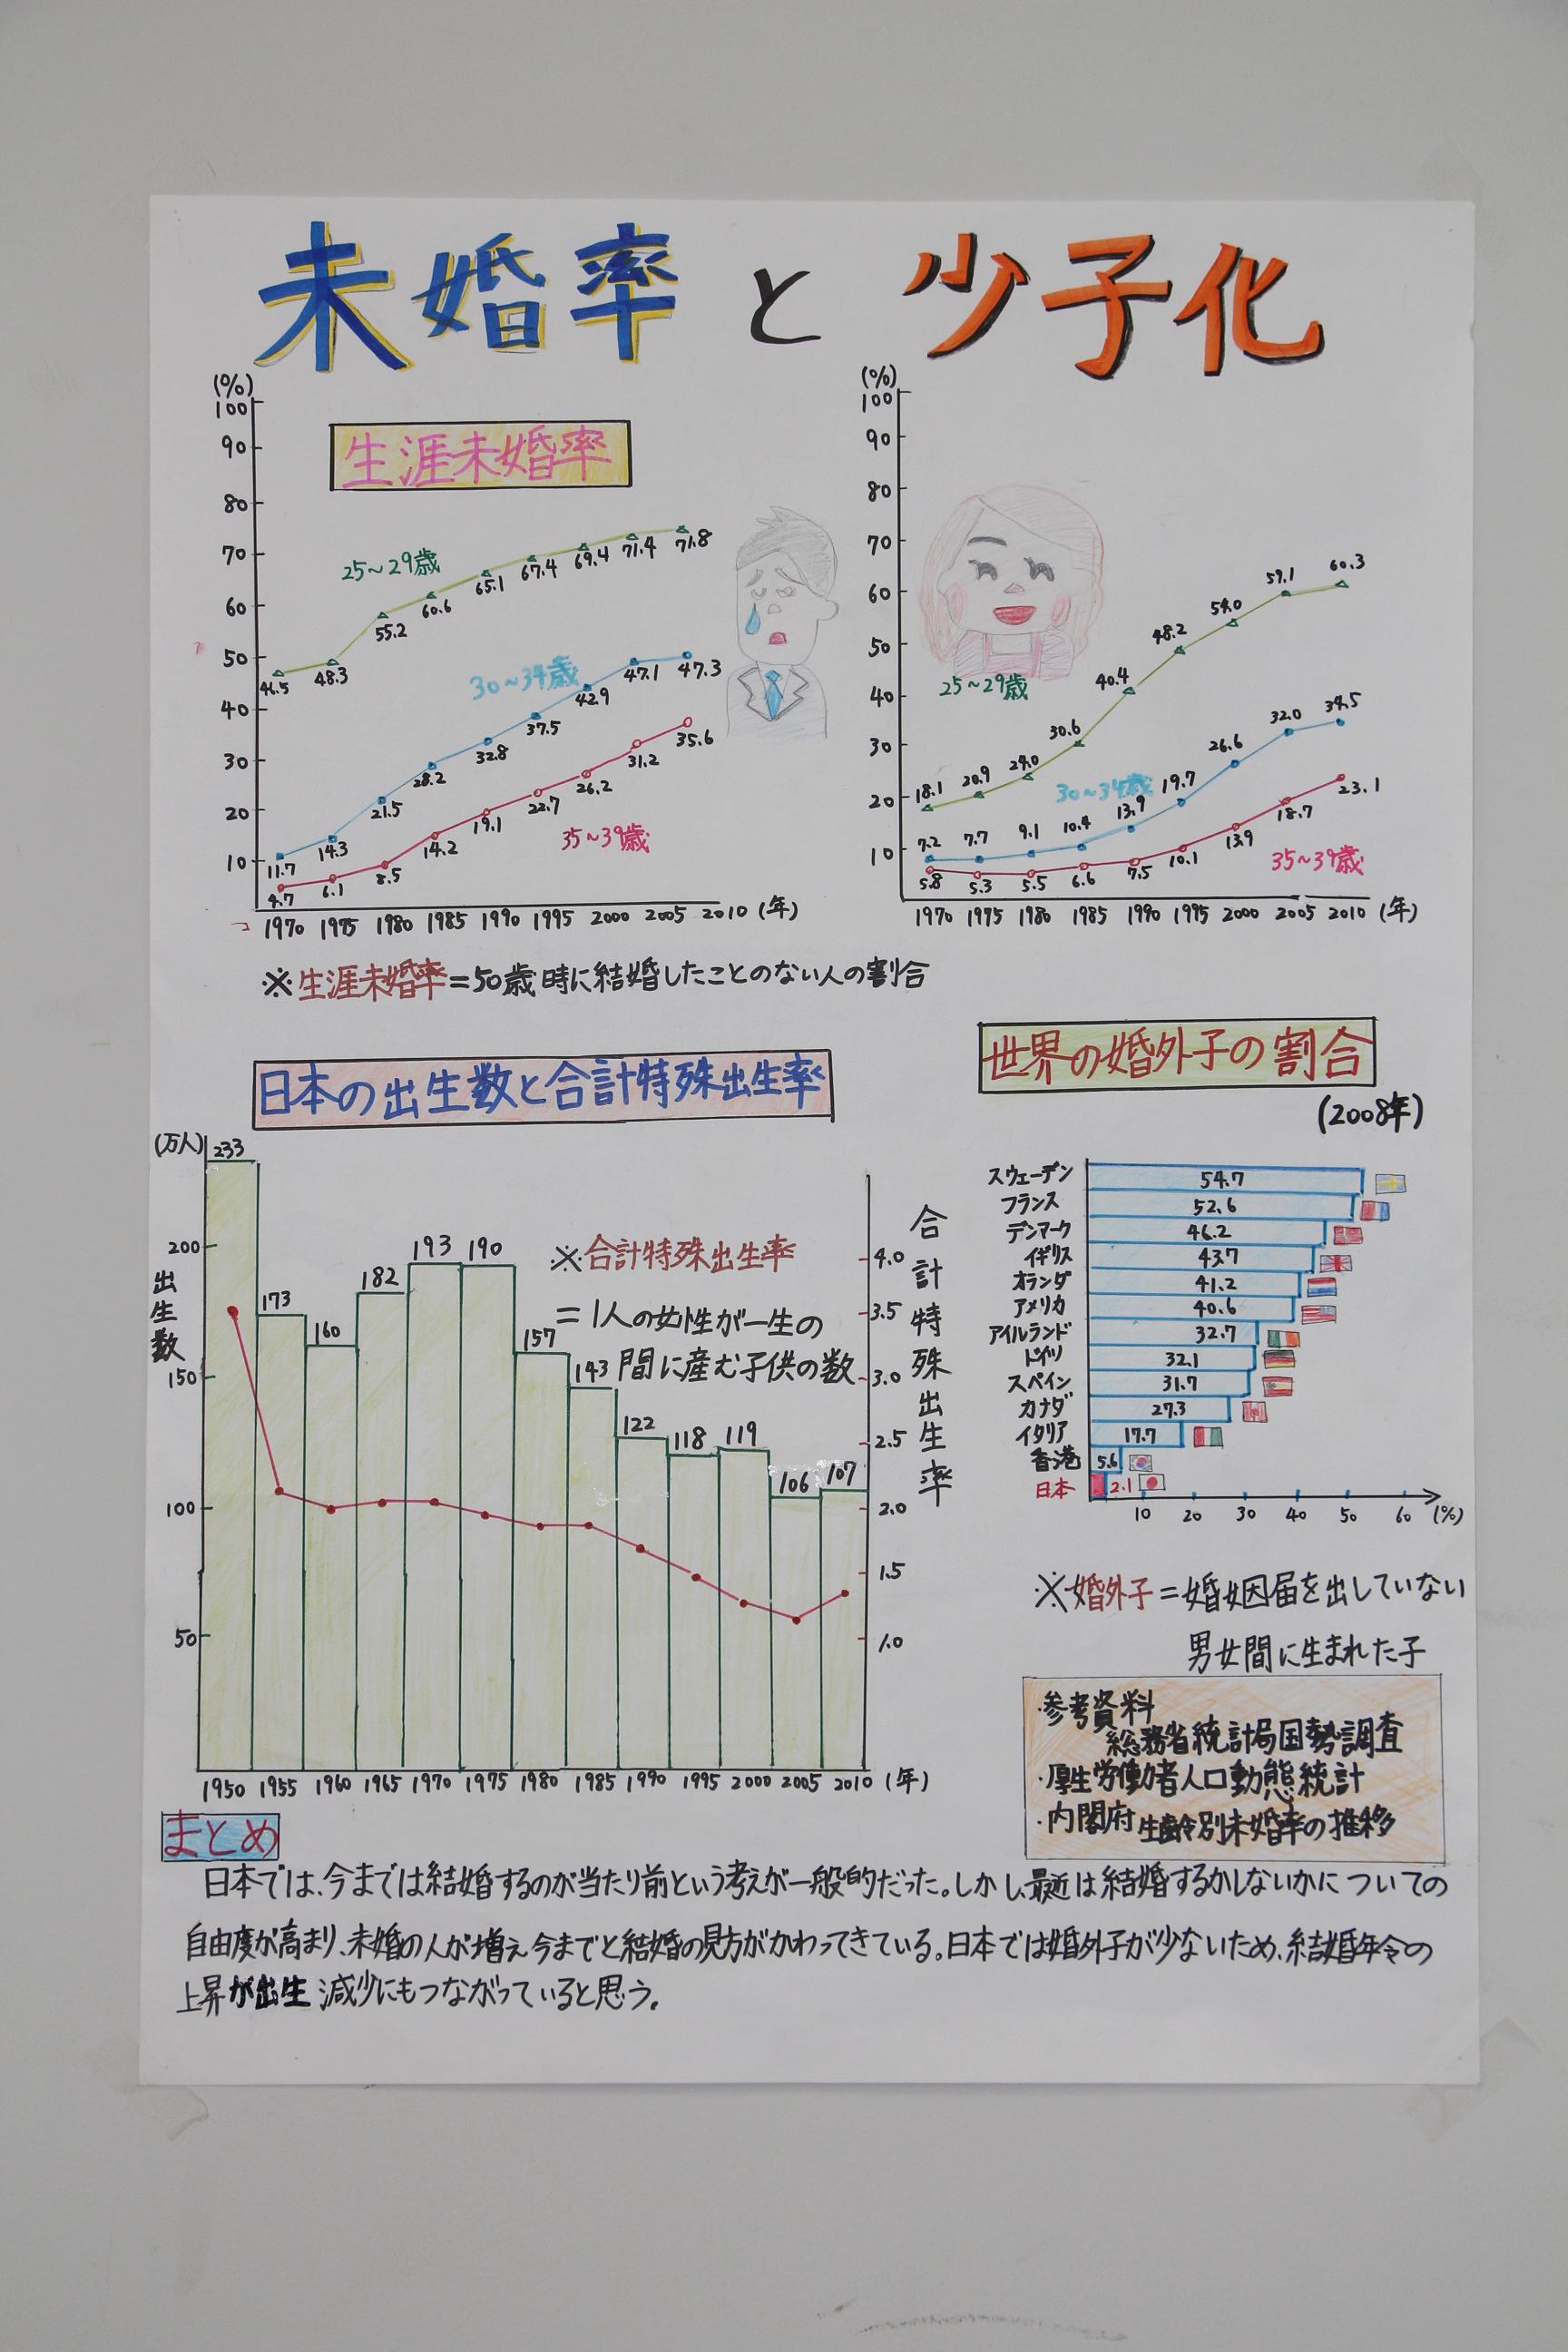 未婚率と少子化
生涯未婚率
(%)
100
90
80
70
60
50
40
30
20
10
25~29歳
46.5 48.3 55.2 60.6 65.1 67.4 69.4 71.4 71.8
30~34歳
11.7 14.3 21.5 28.2 32.8 37.5 42.9 47.1 47.3
35~39歳
4.7 6.1 8.5 14.2 19.1 22.7 26.2 31.2 35.6
1970 1975 1980 1985 1990 1995 2000 2005 2010 (年)
(%)
100
90
80
70
60
50
40
30
20
10
25~29歳
18.1 20.9 24.0 30.6 40.4 48.2 54.0 59.1 60.3
30~34歳
7.2 7.7 9.1 10.4 13.9 19.7 26.6 32.0 34.5
35~39歳
5.8 5.3 5.5 6.6 7.5 10.1 13.9 18.7 23.1
1970 1975 1980 1985 1990 1995 2000 2005 2010 (年)
※生涯未婚率=50歳時に結婚したことのない人の割合
日本の出生数と合計特殊出生率
(万人)
出生数
200
150
100
50
233 173 160 182 193 190 157 143 122 118 119 106 107
※合計特殊出生率
=1人の女性が一生の
間に産む子供の数
4.0
3.5
3.0
2.5
2.0
1.5
1.0
合計特殊出生率
1950 1955 1960 1965 1970 1975 1980 1985 1990 1995 2000 2005 2010 (年)
世界の婚外子の割合
(2008年)
スウェーデン 54.7
フランス 52.6
デンマーク 46.2
イギリス 43.7
オランダ 41.2
アメリカ 40.6
アイルランド 32.7
ドイツ 32.1
スペイン 31.7
カナダ 27.3
イタリア 17.7
香港 5.6
日本 2.1
10 20 30 40 50 60 (%)
※婚外子=婚姻届を出していない
男女間に生まれた子
・参考資料
総務省統計局国勢調査
・厚生労働省人口動態統計
・内閣府 年齢別未婚率の推移
まとめ
日本では、今までは結婚するのが当たり前という考えが一般的だった。しかし、最近は結婚するかしないかについての
自由度が高まり、未婚の人が増え今までと結婚の見方がかわってきている。日本では婚外子が少ないため、結婚年令の
上昇が出生減少にもつながっていると思う。